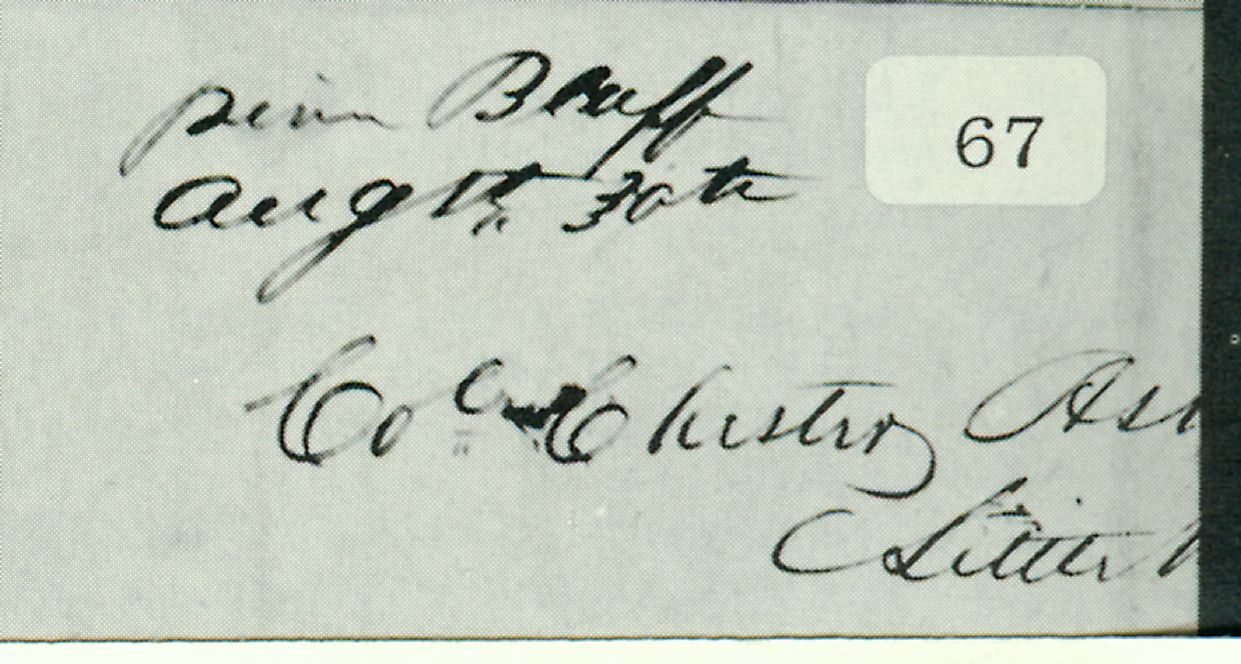 pine Bluff
67
Augtt 30th
Col Chester Ash
Little